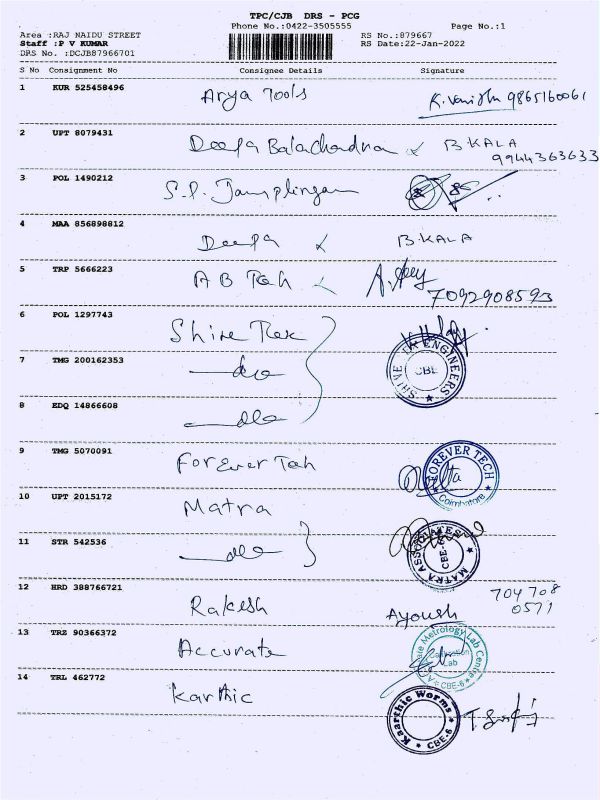 TPC/CJB DRS - PCG
Phone No.:0422-3505555 Page No.:1
Area :RAJ NAIDU STREET RS No.:879667
Staff :P V KUMAR RS Date:22-Jan-2022
DRS No. :DCJB87966701
S No Consignment No Consignee Details Signature
1 KUR 525458496 Arya Tools 9865160061
2 UPT 8079431 Deepa Balachandran B KALA
9944363633
3 POL 1490212 S.P.
4 MAA 856898812 Deepa B.KALA
5 TRP 5666223 A B Teh
7092908593
6 POL 1297743 Shine Tek
SHIVE ENGINEERS CBE
7 TMG 200162353 do
8 EDQ 14866608 do
9 TMG 5070091 Forever Teh
FOREVER TECH Coimbatore
10 UPT 2015172 Matra
11 STR 542536 do
MATRA ASSOCIATES CBE-6
12 HRD 388766721 Rakesh Ayoush 704 708
0571
13 TRZ 90366372 Accurate
Metrology Lab Centre Calibration Lab CBE-6
14 TRL 462772 Karthic
Kaarthic Worms CBE-6